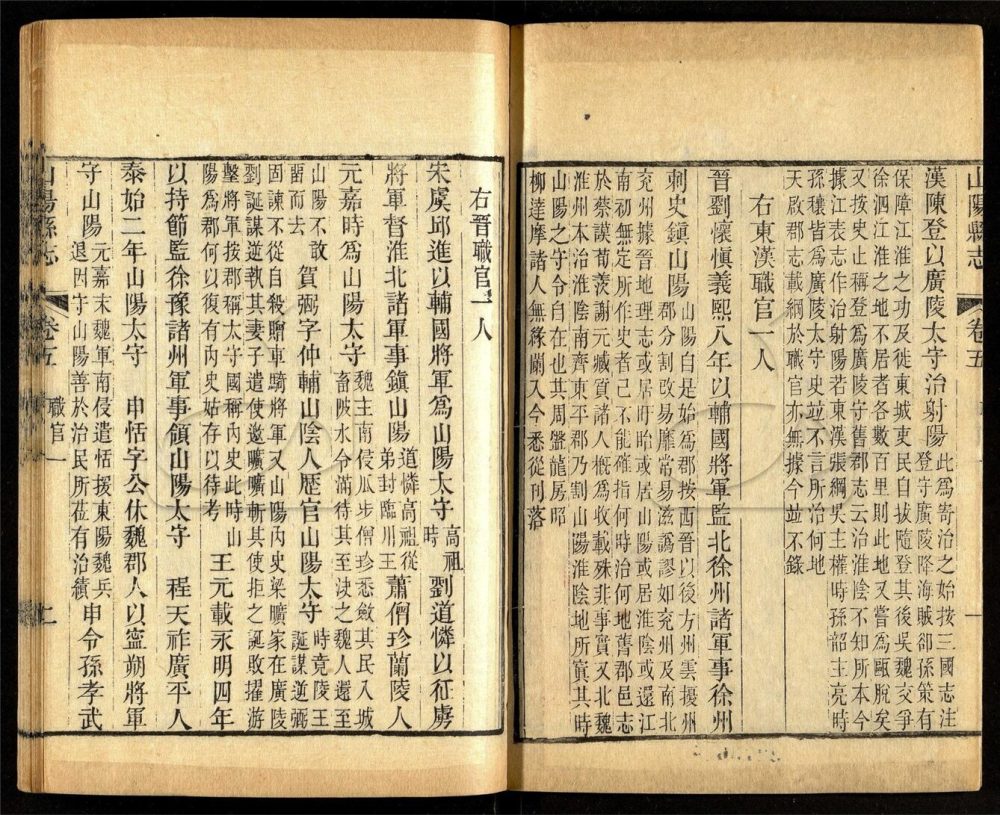 山陽縣志 卷五 一
漢陳登以廣陵太守治射陽
此爲寄治之始按三國志注
登守廣陵降海賊卻孫策有
保障江淮之功及徙東城吏民自拔隨登其後吳魏交爭
徐泗江淮之地不居者各數百里則此地又嘗爲甌脫矣
又按史止稱登爲廣陵守舊郡志云治淮陰不知所本今
據江表志作治射陽若東漢張綱吳主權時孫韶主亮時
孫穰皆爲廣陵太守史並不言所治何地
天啟郡志載綱於職官亦無據今並不錄
右東漢職官一人
晉劉懷愼義熙八年以輔國將軍監北徐州諸軍事徐州
刺史鎮山陽
山陽自是始爲郡按西晉以後方州雲擾州
郡分割改易靡常易滋譌謬如兗州及南北
兗州據晉地理志或居盱眙或居山陽或居淮陰或還江
南初無定所作史者已不能確指何時治何地舊郡邑志
於蔡謨荀羨謝元臧質諸人概爲收載殊非事實又北魏
淮州本治淮陰南齊東平郡乃割山陽淮陰地所寘其時
山陽之守令自在也其周盤龍房昭
柳達摩諸人無緣闌入今悉從刊落
右晉職官一人
宋虞邱進以輔國將軍爲山陽太守
高祖
時
劉道憐以征虜
將軍督淮北諸軍事鎮山陽
道憐高祖從
弟封臨川王
蕭僧珍蘭陵人
元嘉時爲山陽太守
魏主南侵瓜步僧珍悉斂其民入城
畜陂水令滿待其至決之魏人還至
山陽不敢
畱而去
賀弼字仲輔山陰人歷官山陽太守
時竟陵王
誕謀逆弼
固諫不從自殺贈車騎將軍又山陽內史梁曠家在廣陵
劉誕謀逆執其妻子遣使邀曠曠斬其使拒之誕敗擢游
擊將軍按郡稱太守國稱內史此時山
陽爲郡何以復有內史姑存以待考
王元載永明四年
以持節監徐豫諸州軍事領山陽太守 程天祚廣平人
泰始二年山陽太守 申恬字公休魏郡人以寍朔將軍
守山陽
元嘉末魏軍南侵遣恬援東陽魏兵
退因守山陽善於治民所莅有治績
申令孫孝武
山陽縣志 卷五 職官一 二